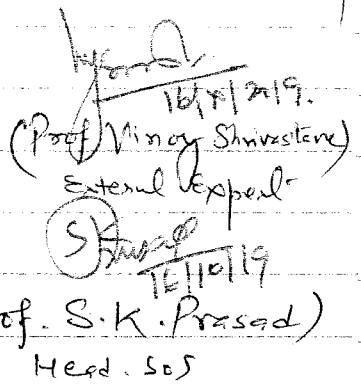 16/X/2019.
(Prof Vinoy Shrivastava)
External Expert
S K Prasad
16/10/19
of. S.K. Prasad)
Head. SoS